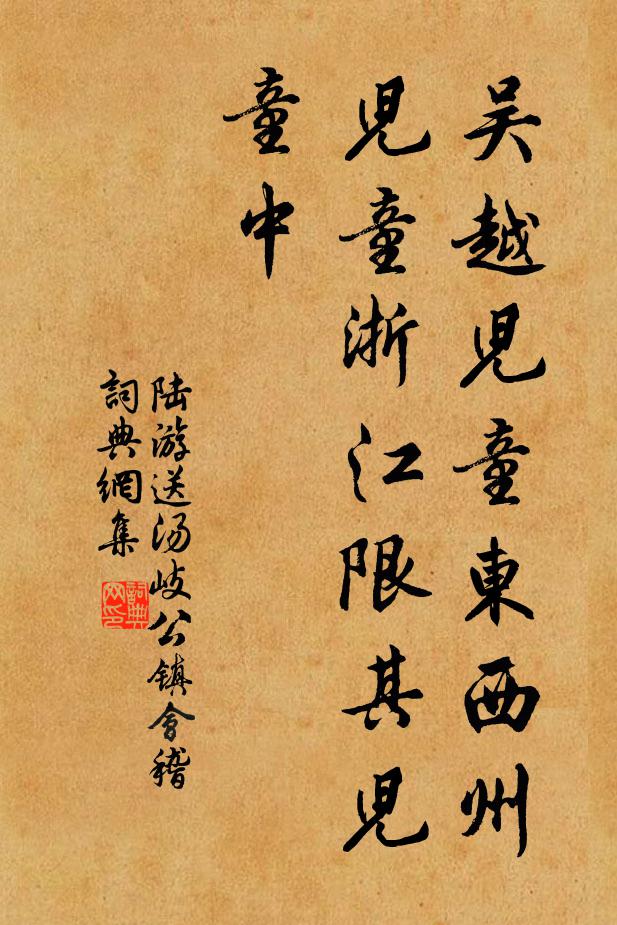 吴越児童東西州
児童浙江限其児
童中
陆游送汤岐公镇會稽
詞典網集
詞典网印